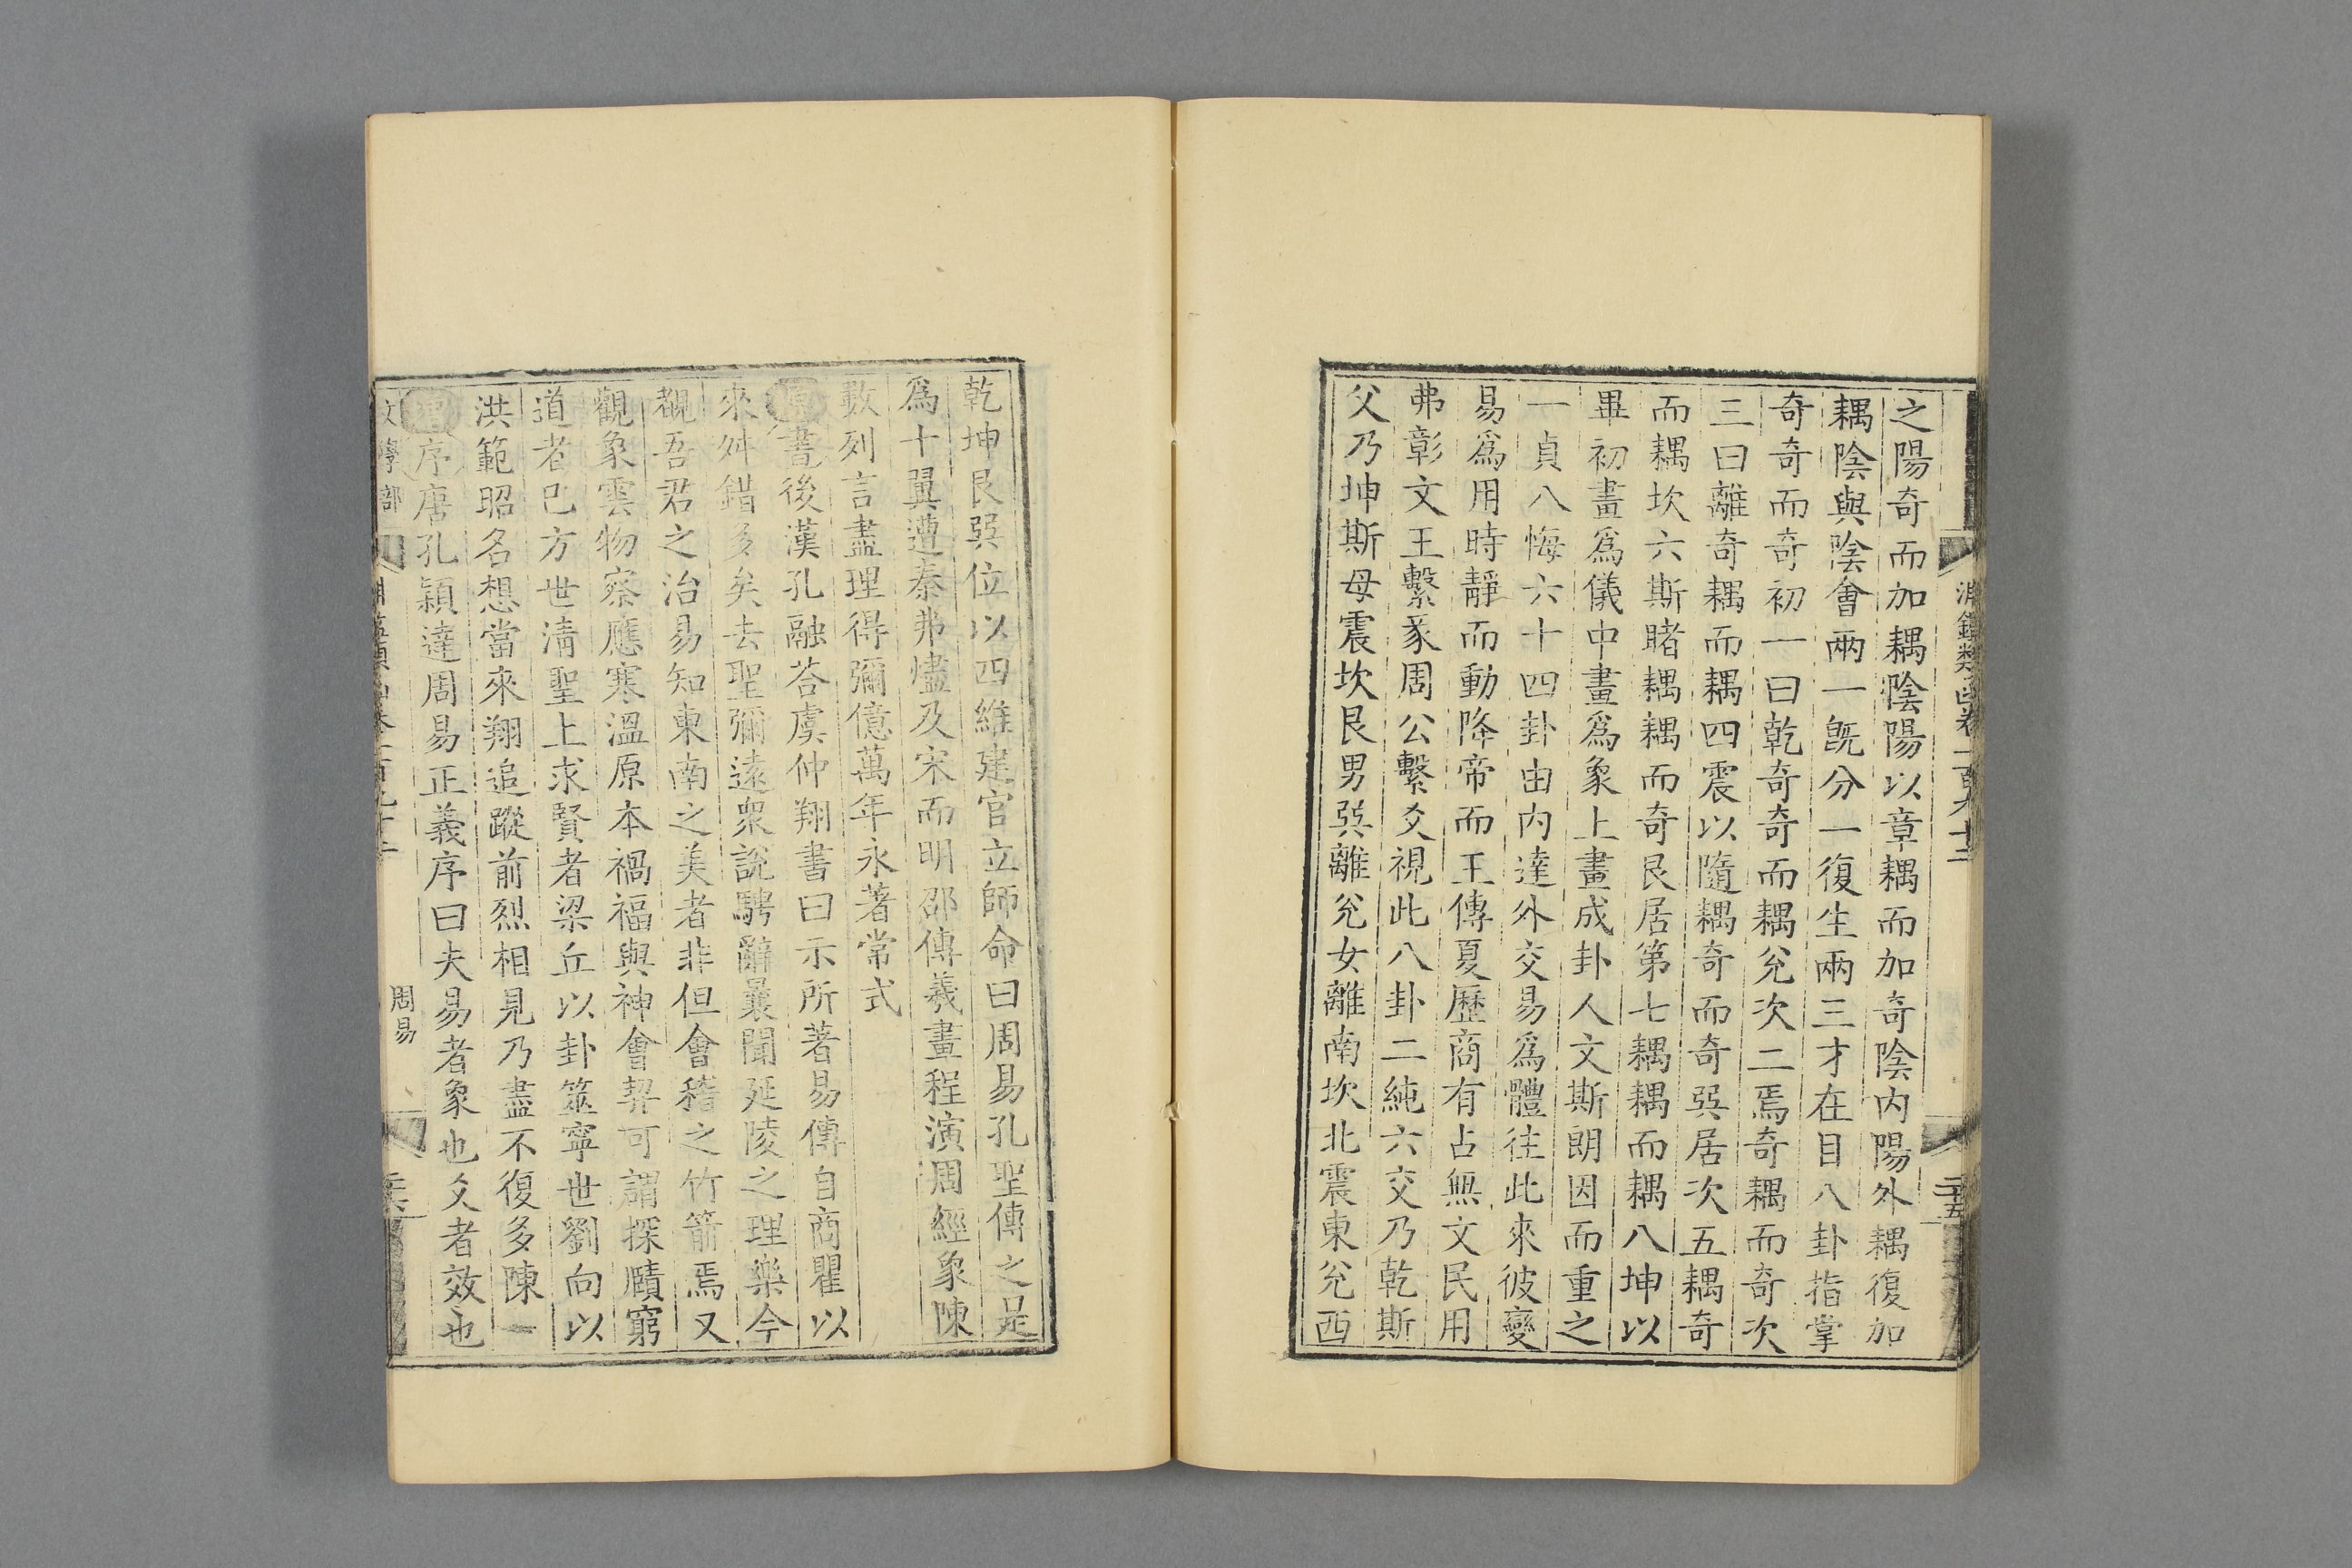 淵鑑類函卷一百九十二
二十五
之陽奇而加耦陰陽以章耦而加奇陰内陽外耦復加
耦陰與陰會兩一旣分一復生兩三才在目八卦指掌
奇奇而奇初一曰乾奇奇而耦兊次二焉奇耦而奇次
三曰離奇耦而耦四震以隨耦奇而奇巽居次五耦奇
而耦坎六斯睹耦耦而奇艮居第七耦耦而耦八坤以
畢初畫爲儀中畫爲象上畫成卦人文斯朗因而重之
一貞八悔六十四卦由内達外交易爲體往此來彼變
易爲用時靜而動降帝而王傳夏歷商有占無文民用
弗彰文王繫彖周公繫爻視此八卦二純六交乃乾斯
父乃坤斯母震坎艮男巽離兊女離南坎北震東兊西
乾坤艮巽位以四維建官立師命曰周易孔聖傳之是
爲十翼遭秦弗燼及宋而明邵傳羲畫程演周經象陳
數列言盡理得彌億萬年永著常式
原書後漢孔融荅虞仲翔書曰示所著易傳自商瞿以
來舛錯多矣去聖彌遠衆說騁辭曩聞延陵之理樂今
觀吾君之治易知東南之美者非但會稽之竹箭焉又
觀象雲物察應寒溫原本禍福與神會契可謂探賾窮
道者巳方世淸聖上求賢者梁丘以卦筮寧世劉向以
洪範昭名想當來翔追蹤前烈相見乃盡不復多陳一
序唐孔穎達周易正義序曰夫易者象也爻者效也
文學部
周易